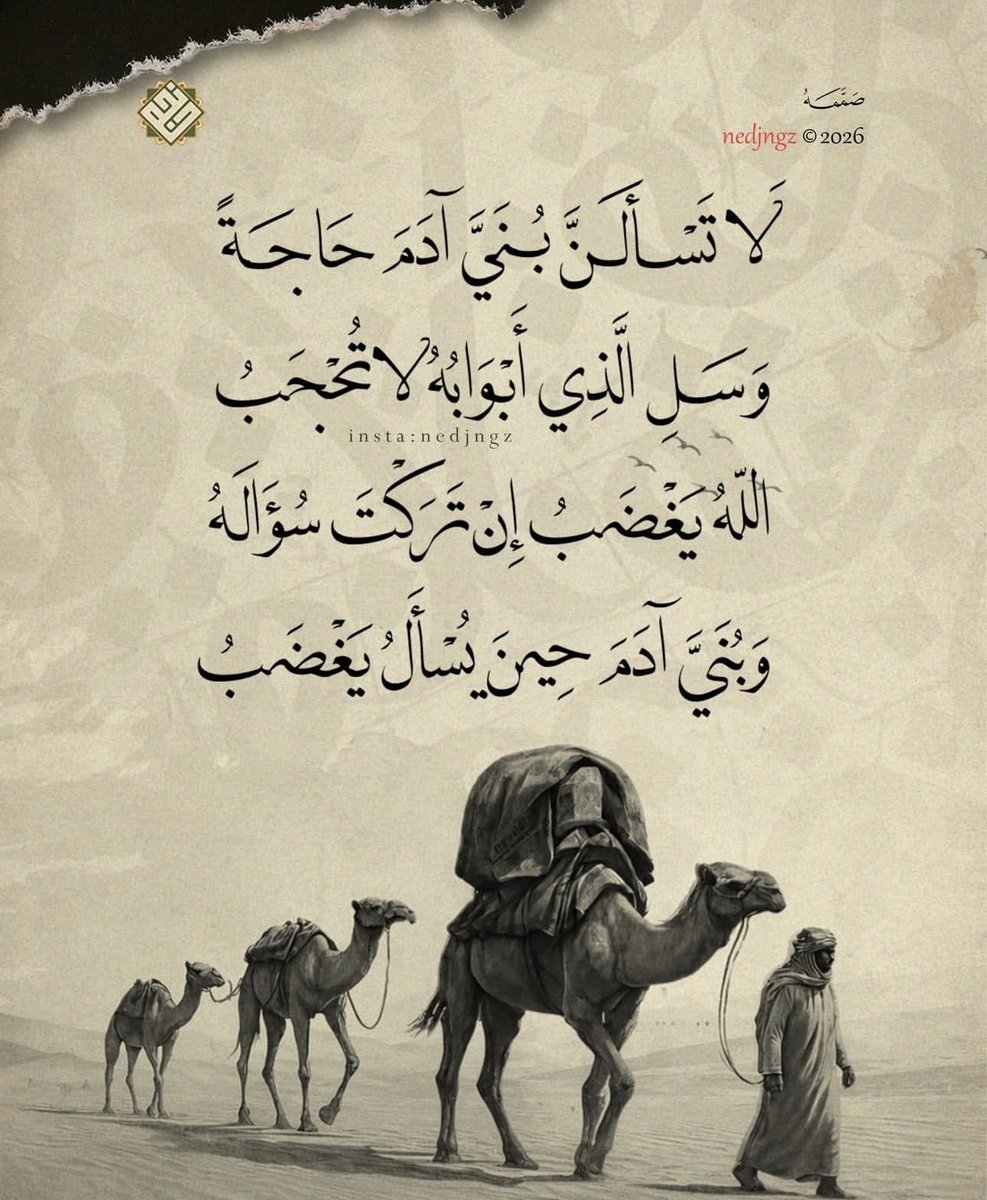 صَمَّمَهُ
nedjngz © 2026
لَا تَسْأَلَنَّ بُنَيَّ آدَمَ حَاجَةً
وَسَلِ الَّذِي أَبْوَابُهُ لَا تُحْجَبُ
insta:nedjngz
اللّٰهُ يَغْضَبُ إِنْ تَرَكْتَ سُؤَالَهُ
وَبُنَيَّ آدَمَ حِينَ يُسْأَلُ يَغْضَبُ